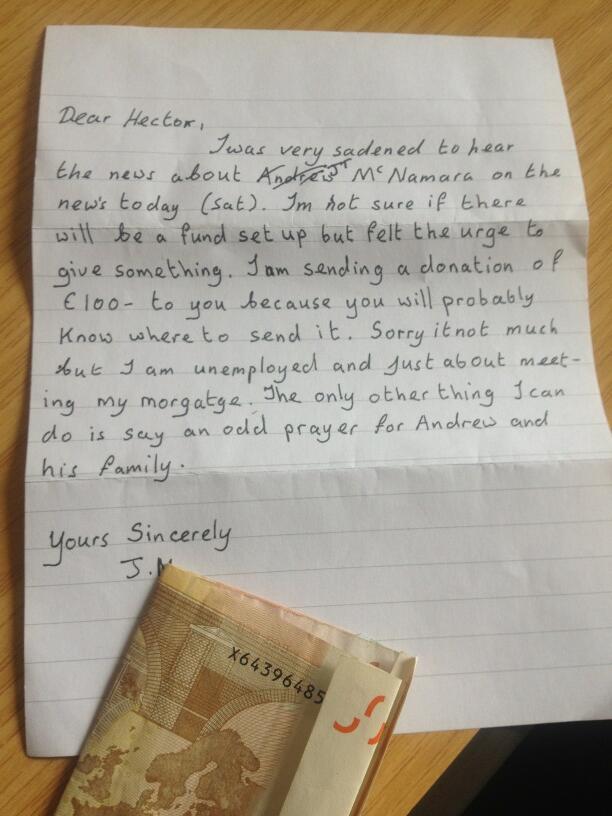 Dear Hector,
I was very sadened to hear
the news about Andrew's McNamara on the
new's today (Sat). Im not sure if there
will be a fund set up but felt the urge to
give something. I am sending a donation of
€100- to you because you will probably
Know where to send it. Sorry it not much
but I am unemployed and just about meet-
ing my morgatge. The only other thing I can
do is say an odd prayer for Andrew and
his family.
Yours Sincerely
J.M
X64396485